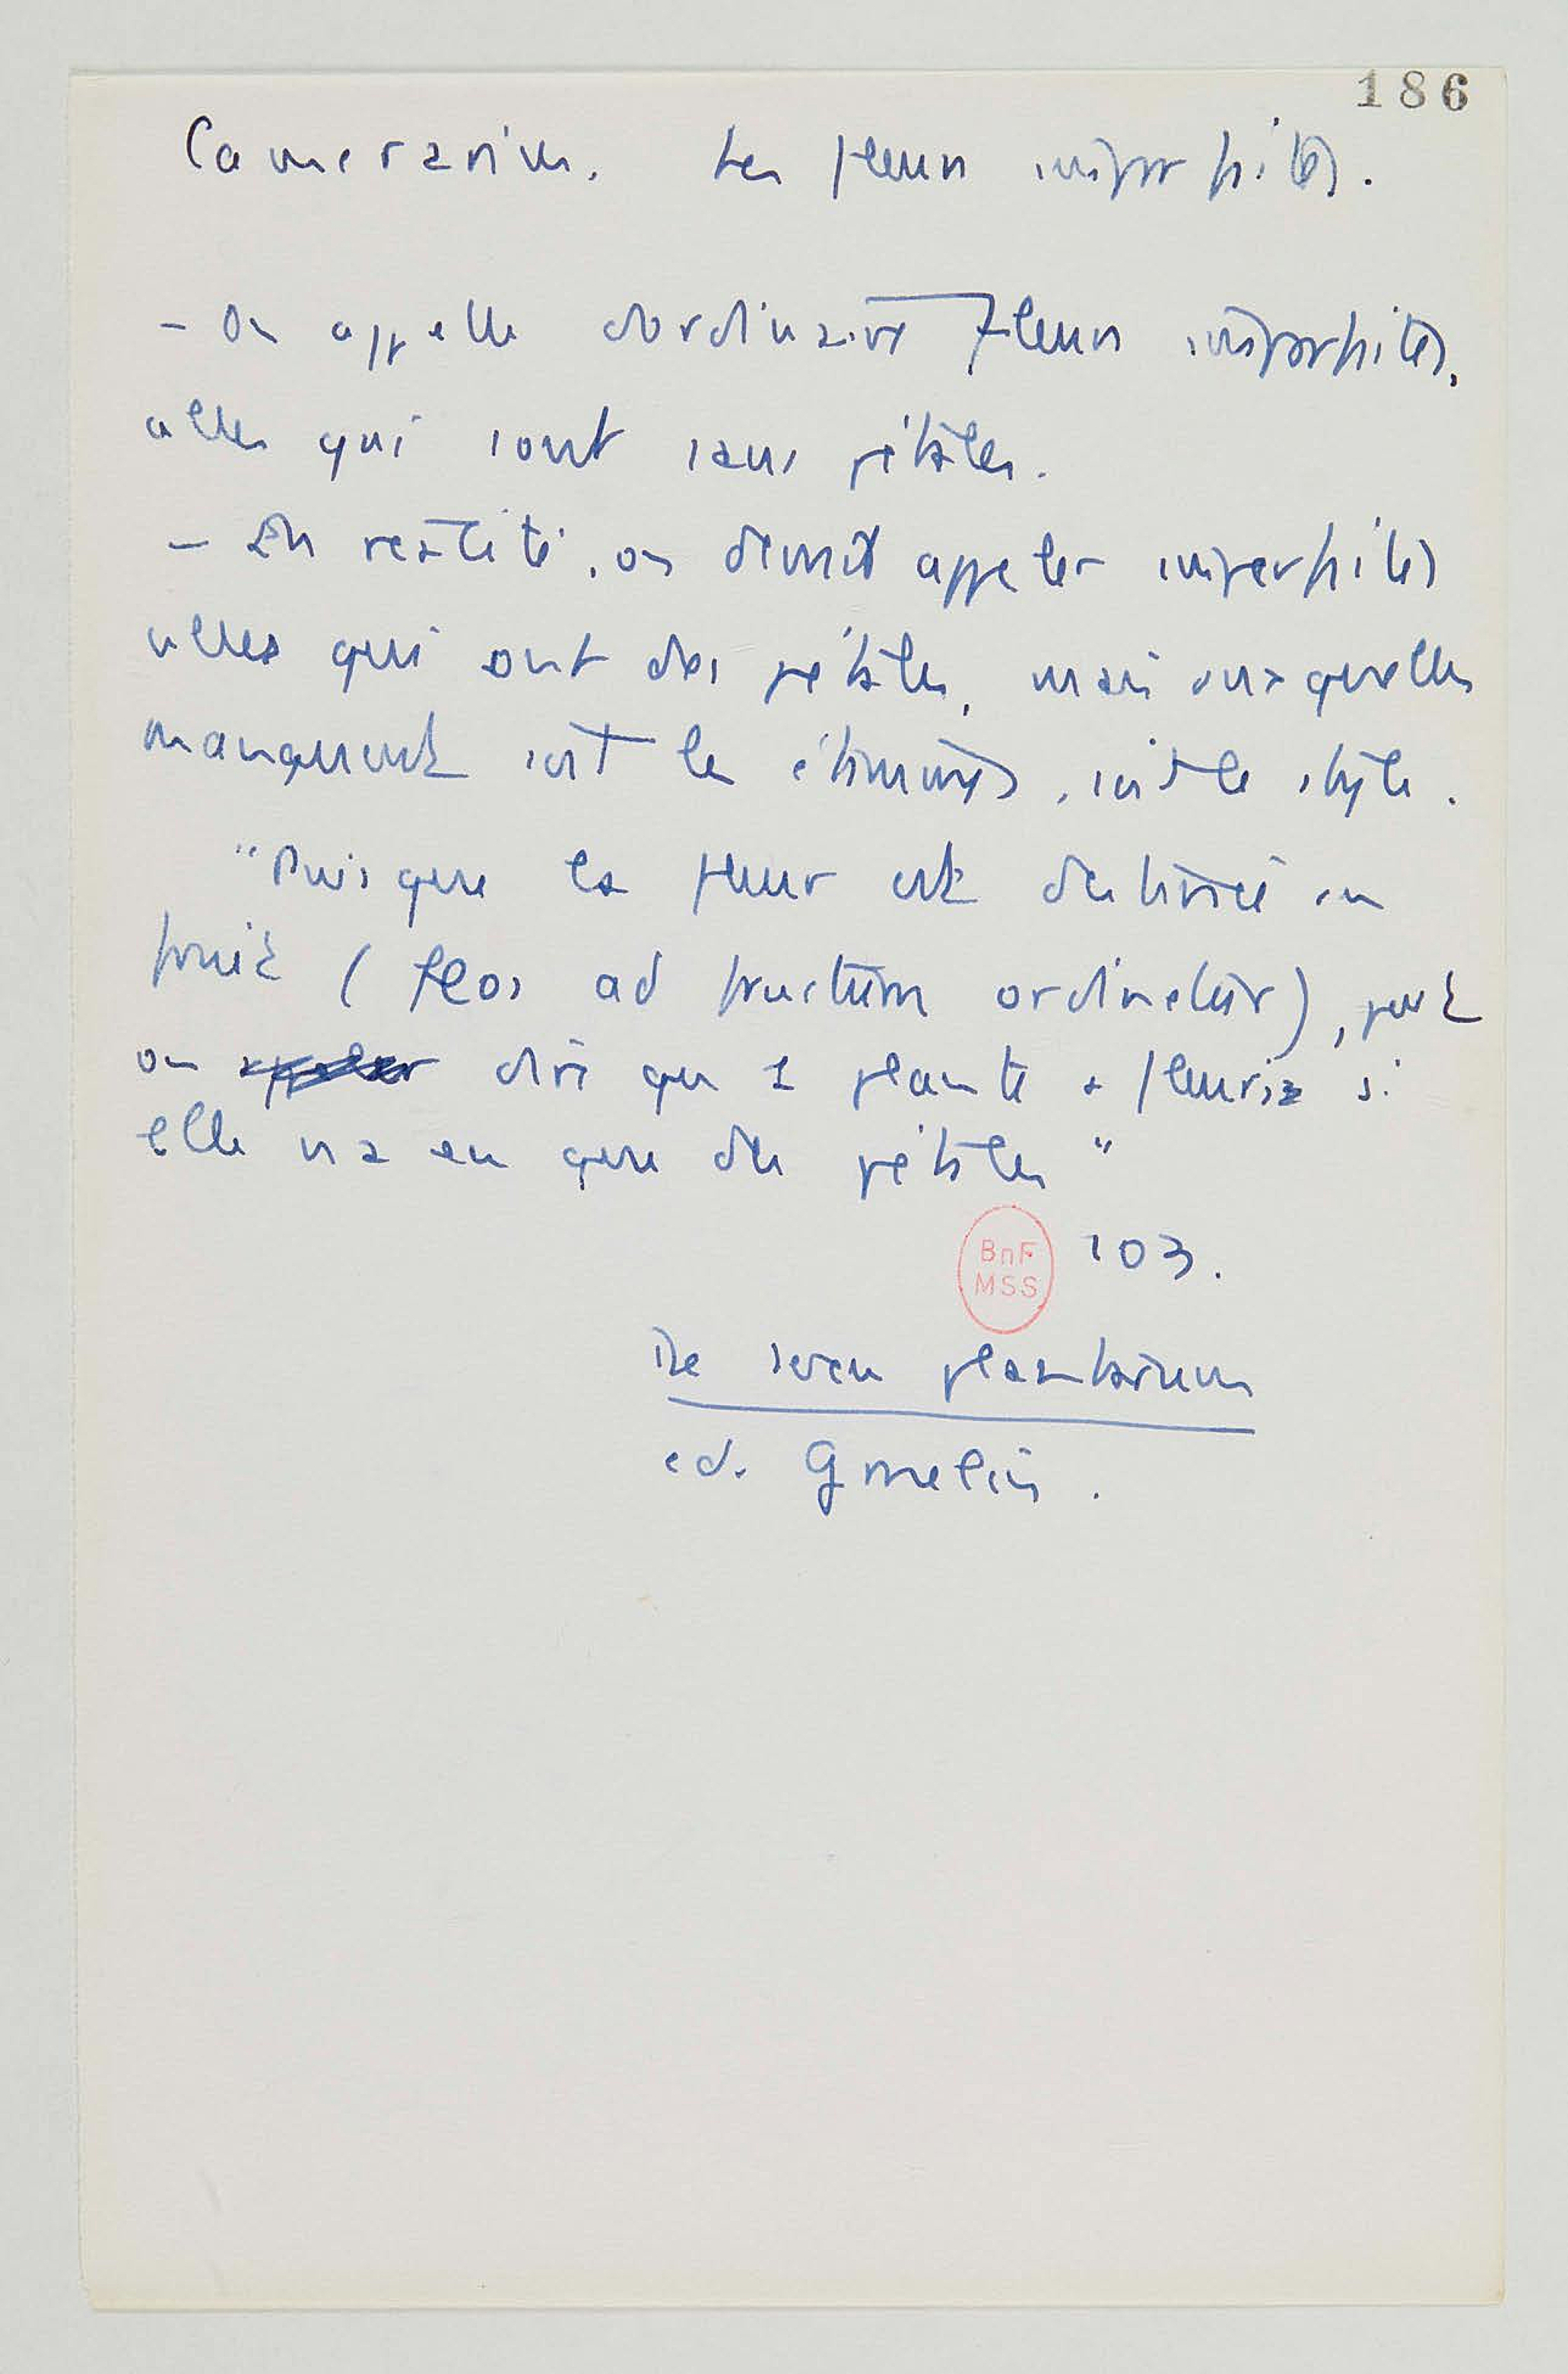 186
Camerarius. Les fleurs imparfaites.
- On appelle d'ordinaire fleurs imparfaites,
celles qui sont sans pétales.
- En réalité, on devrait appeler imparfaites
celles qui ont des pétales, mais auxquelles
manquent soit les étamines, soit le style.
"Puisque la fleur est destinée au
fruit (flos ad fructum ordinetur), peut
on dire qu 1 plante a fleuri si
elle n'a eu que des pétales"
BnF
MSS
103.
De sexu plantarum
ed. Gmelin.